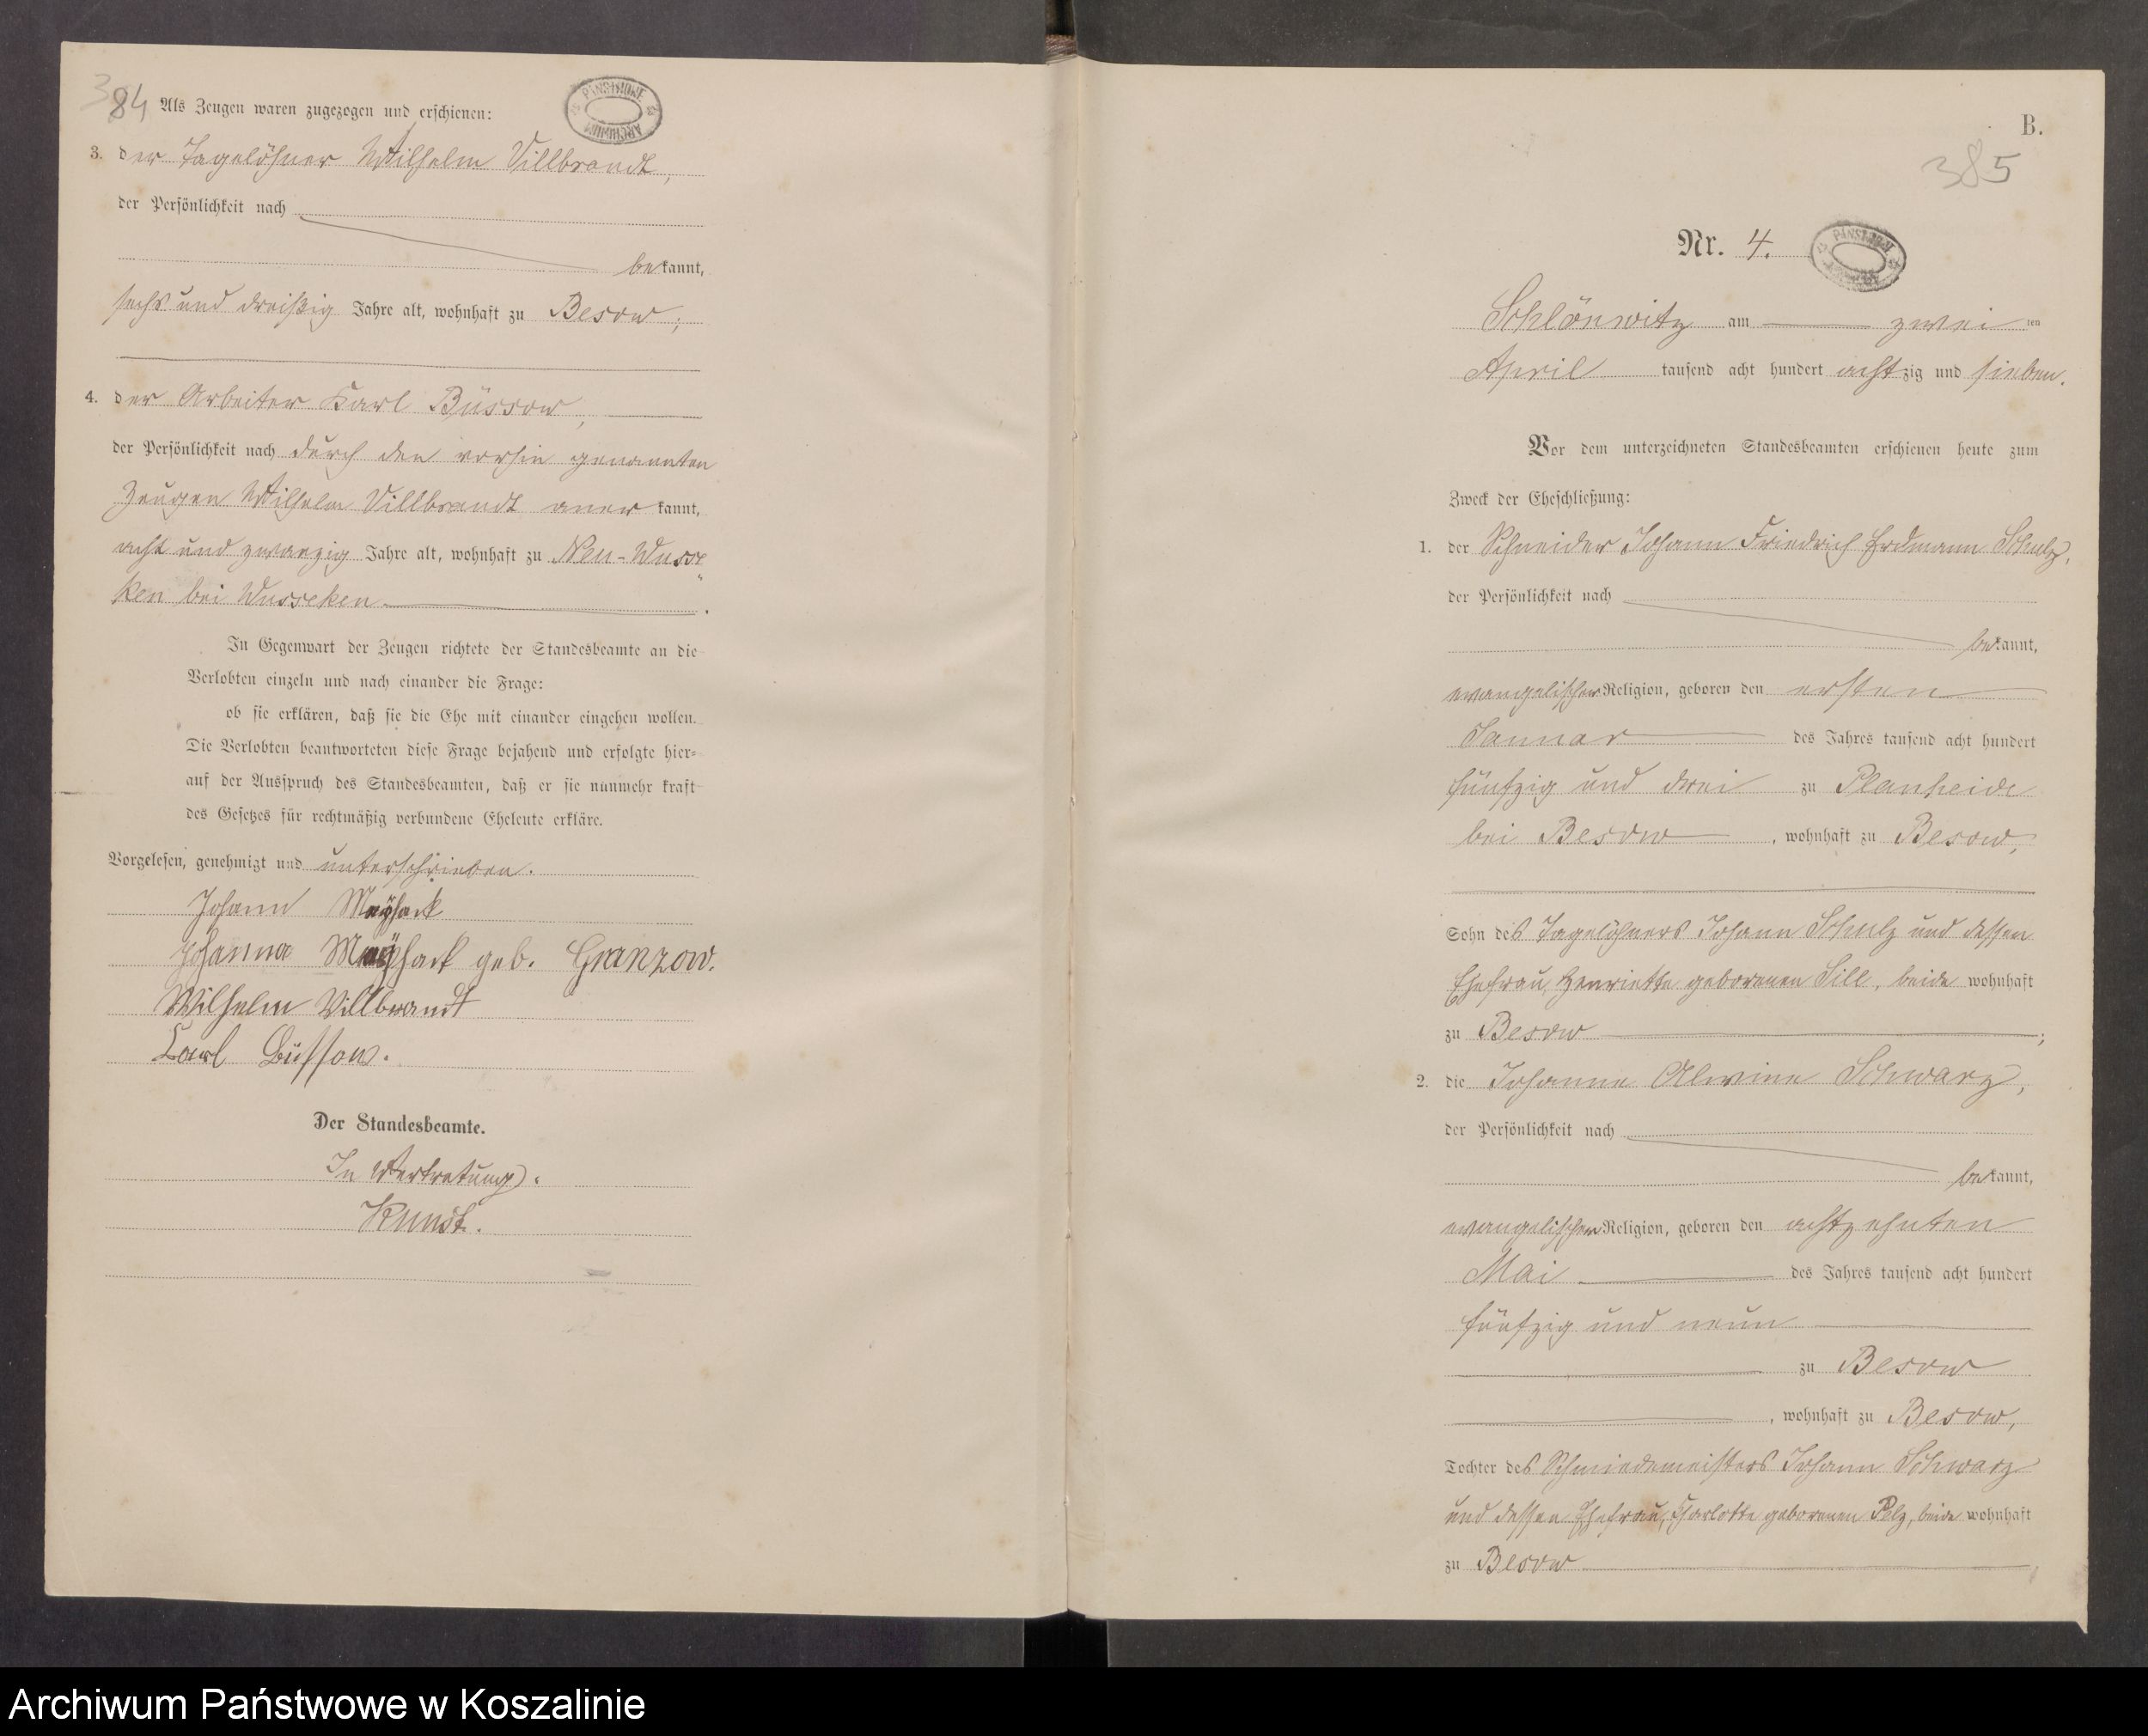 384
Als Zeugen waren zugezogen und erschienen:
PAŃSTWOWE
ARCHIWUM
3. der Tagelöhner Wilhelm Villbrandt,
der Persönlichkeit nach
bekannt,
sechs und dreißig Jahre alt, wohnhaft zu Besow;
4. der Arbeiter Karl Büssow,
der Persönlichkeit nach durch den vorhin genannten
Zeugen Wilhelm Villbrandt anerkannt,
acht und zwanzig Jahre alt, wohnhaft zu Neu-Wusse
ken bei Wusseken.
In Gegenwart der Zeugen richtete der Standesbeamte an die
Verlobten einzeln und nach einander die Frage:
ob sie erklären, daß sie die Ehe mit einander eingehen wollen.
Die Verlobten beantworteten diese Frage bejahend und erfolgte hier-
auf der Ausspruch des Standesbeamten, daß er sie nunmehr kraft
des Gesetzes für rechtmäßig verbundene Eheleute erkläre.
Vorgelesen, genehmigt und unterschrieben.
Johann Mayhack
Johanna Mayhack geb. Granzow.
Wilhelm Villbrandt
Carl Büssow.
Der Standesbeamte.
In Vertretung.
Kunst.
B.
385
Nr. 4.
PAŃSTWOWE
Schlönwitz am zwei ten
April tausend acht hundert achtzig und sieben.
Vor dem unterzeichneten Standesbeamten erschienen heute zum
Zweck der Eheschließung:
1. der Schneider Johann Friedrich Erdmann Schulz,
der Persönlichkeit nach
bekannt,
evangelischer Religion, geboren den ersten
Januar des Jahres tausend acht hundert
fünfzig und drei zu Planheide
bei Besow, wohnhaft zu Besow,
Sohn des Tagelöhners Johann Schulz und dessen
Ehefrau, Henriette geborenen Sill, beide wohnhaft
zu Besow;
2. die Johanne Alwine Schwarz,
der Persönlichkeit nach
bekannt,
evangelischer Religion, geboren den achtzehnten
Mai des Jahres tausend acht hundert
fünfzig und neun
zu Besow
, wohnhaft zu Besow,
Tochter des Schmiedemeisters Johann Schwarz
und dessen Ehefrau, Charlotte geborenen Pelz, beide wohnhaft
zu Besow
Archiwum Państwowe w Koszalinie